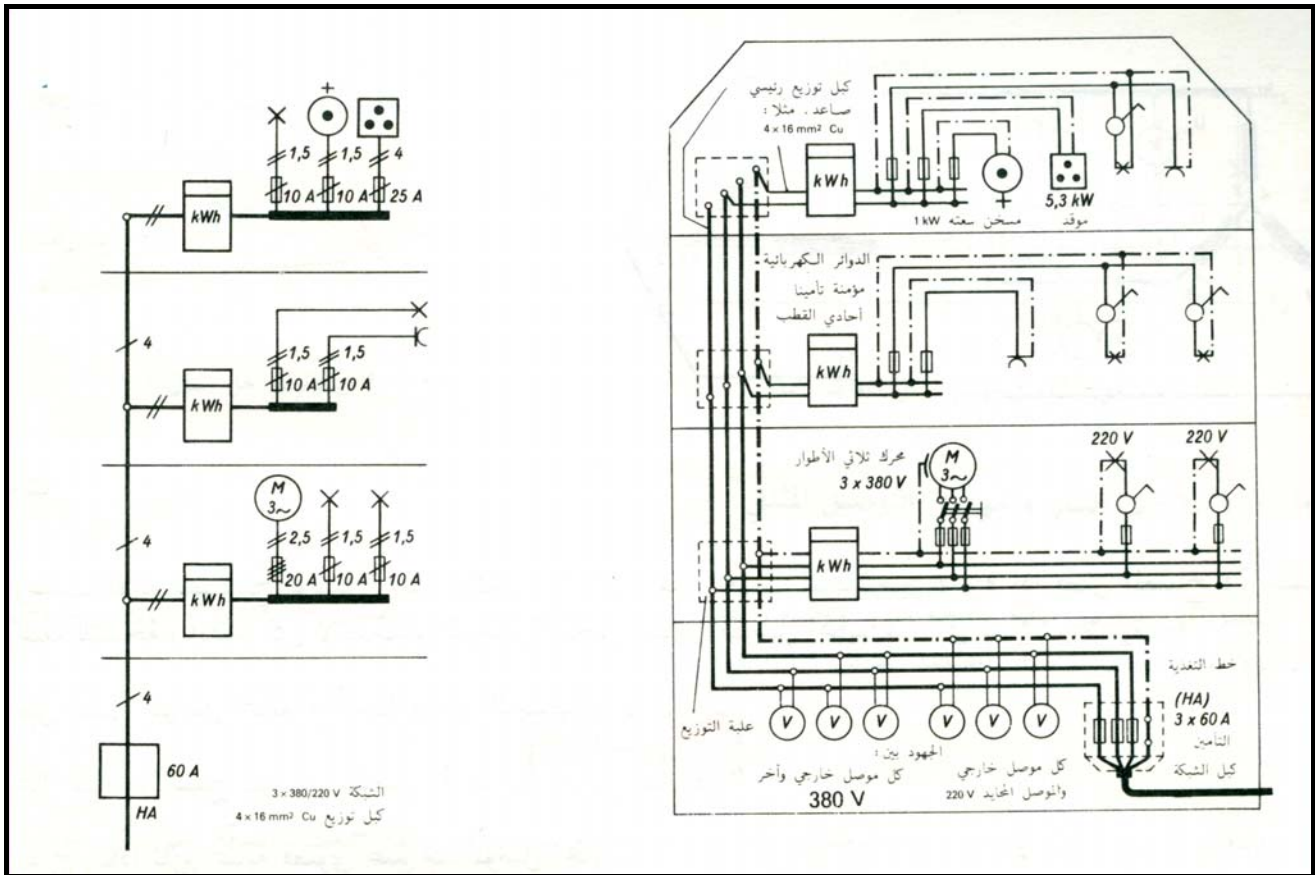 1,5
1,5
4
10 A
10 A
25 A
kWh
4
1,5
1,5
10 A
10 A
kWh
4
M
3~
2,5
1,5
1,5
20 A
10 A
10 A
kWh
4
60 A
HA
الشبكة 3 × 380/220 V
كبل توزيع 4 × 16 mm² Cu
كبل توزيع رئيسي
صاعد. مثلا :
4 × 16 mm² Cu
kWh
مسخن سعته 1 kW
5,3 kW
موقد
الدوائر الكهربائية
مؤمنة تأمينا
أحادي القطب
kWh
محرك ثلاثي الأطوار
3 x 380 V
M
3~
220 V
220 V
kWh
علبة التوزيع
V
V
V
V
V
V
الجهود بين :
كل موصل خارجي وأخر
380 V
كل موصل خارجي
والموصل المحايد 220 V
خط التغذية
(HA)
3 x 60 A
التأمين
كبل الشبكة